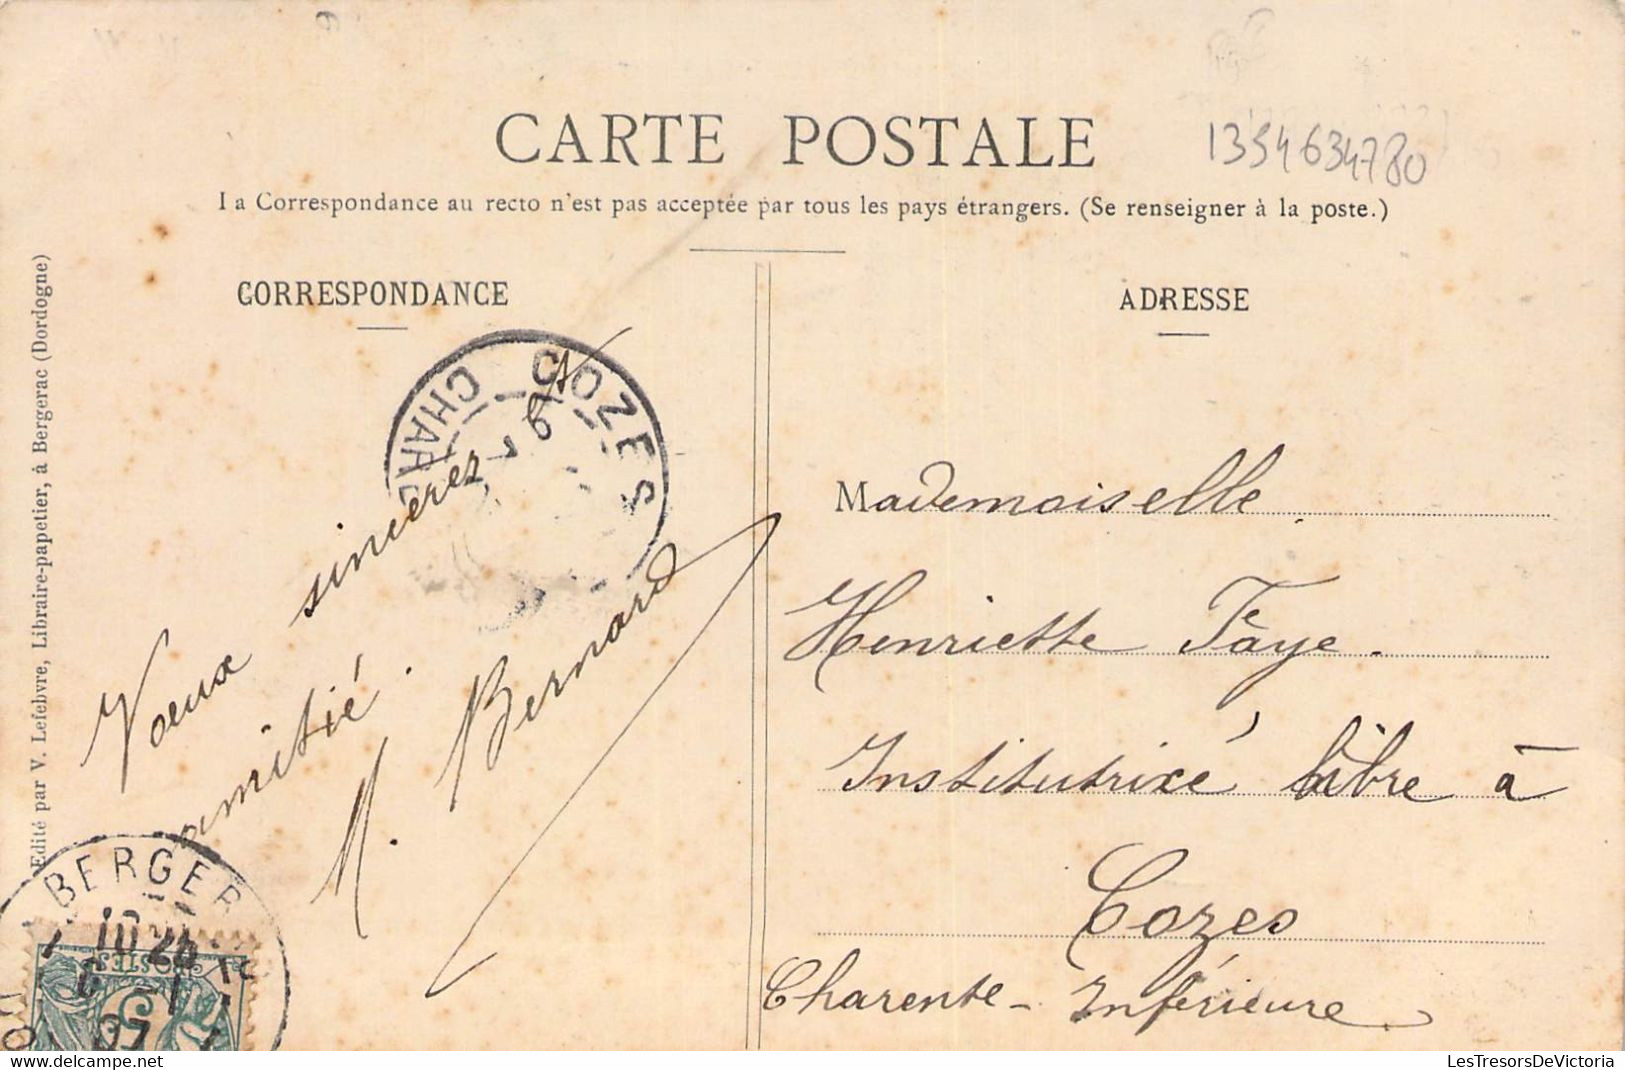 CARTE POSTALE
1354634780
La Correspondance au recto n'est pas acceptée par tous les pays étrangers. (Se renseigner à la poste.)
CORRESPONDANCE
ADRESSE
Edité par V. Lefebvre, Libraire-papetier, à Bergerac (Dordogne)
COZES
CHAR
Voeux sincères et
amitié.
M. Bernard
Mademoiselle
Henriette Faye.
Institutrice libre à
Cozes
Charente-Inférieure
BERGER
10 24
6 -1
07
POSTES
5
delcampe.net
LesTresorsDeVictoria